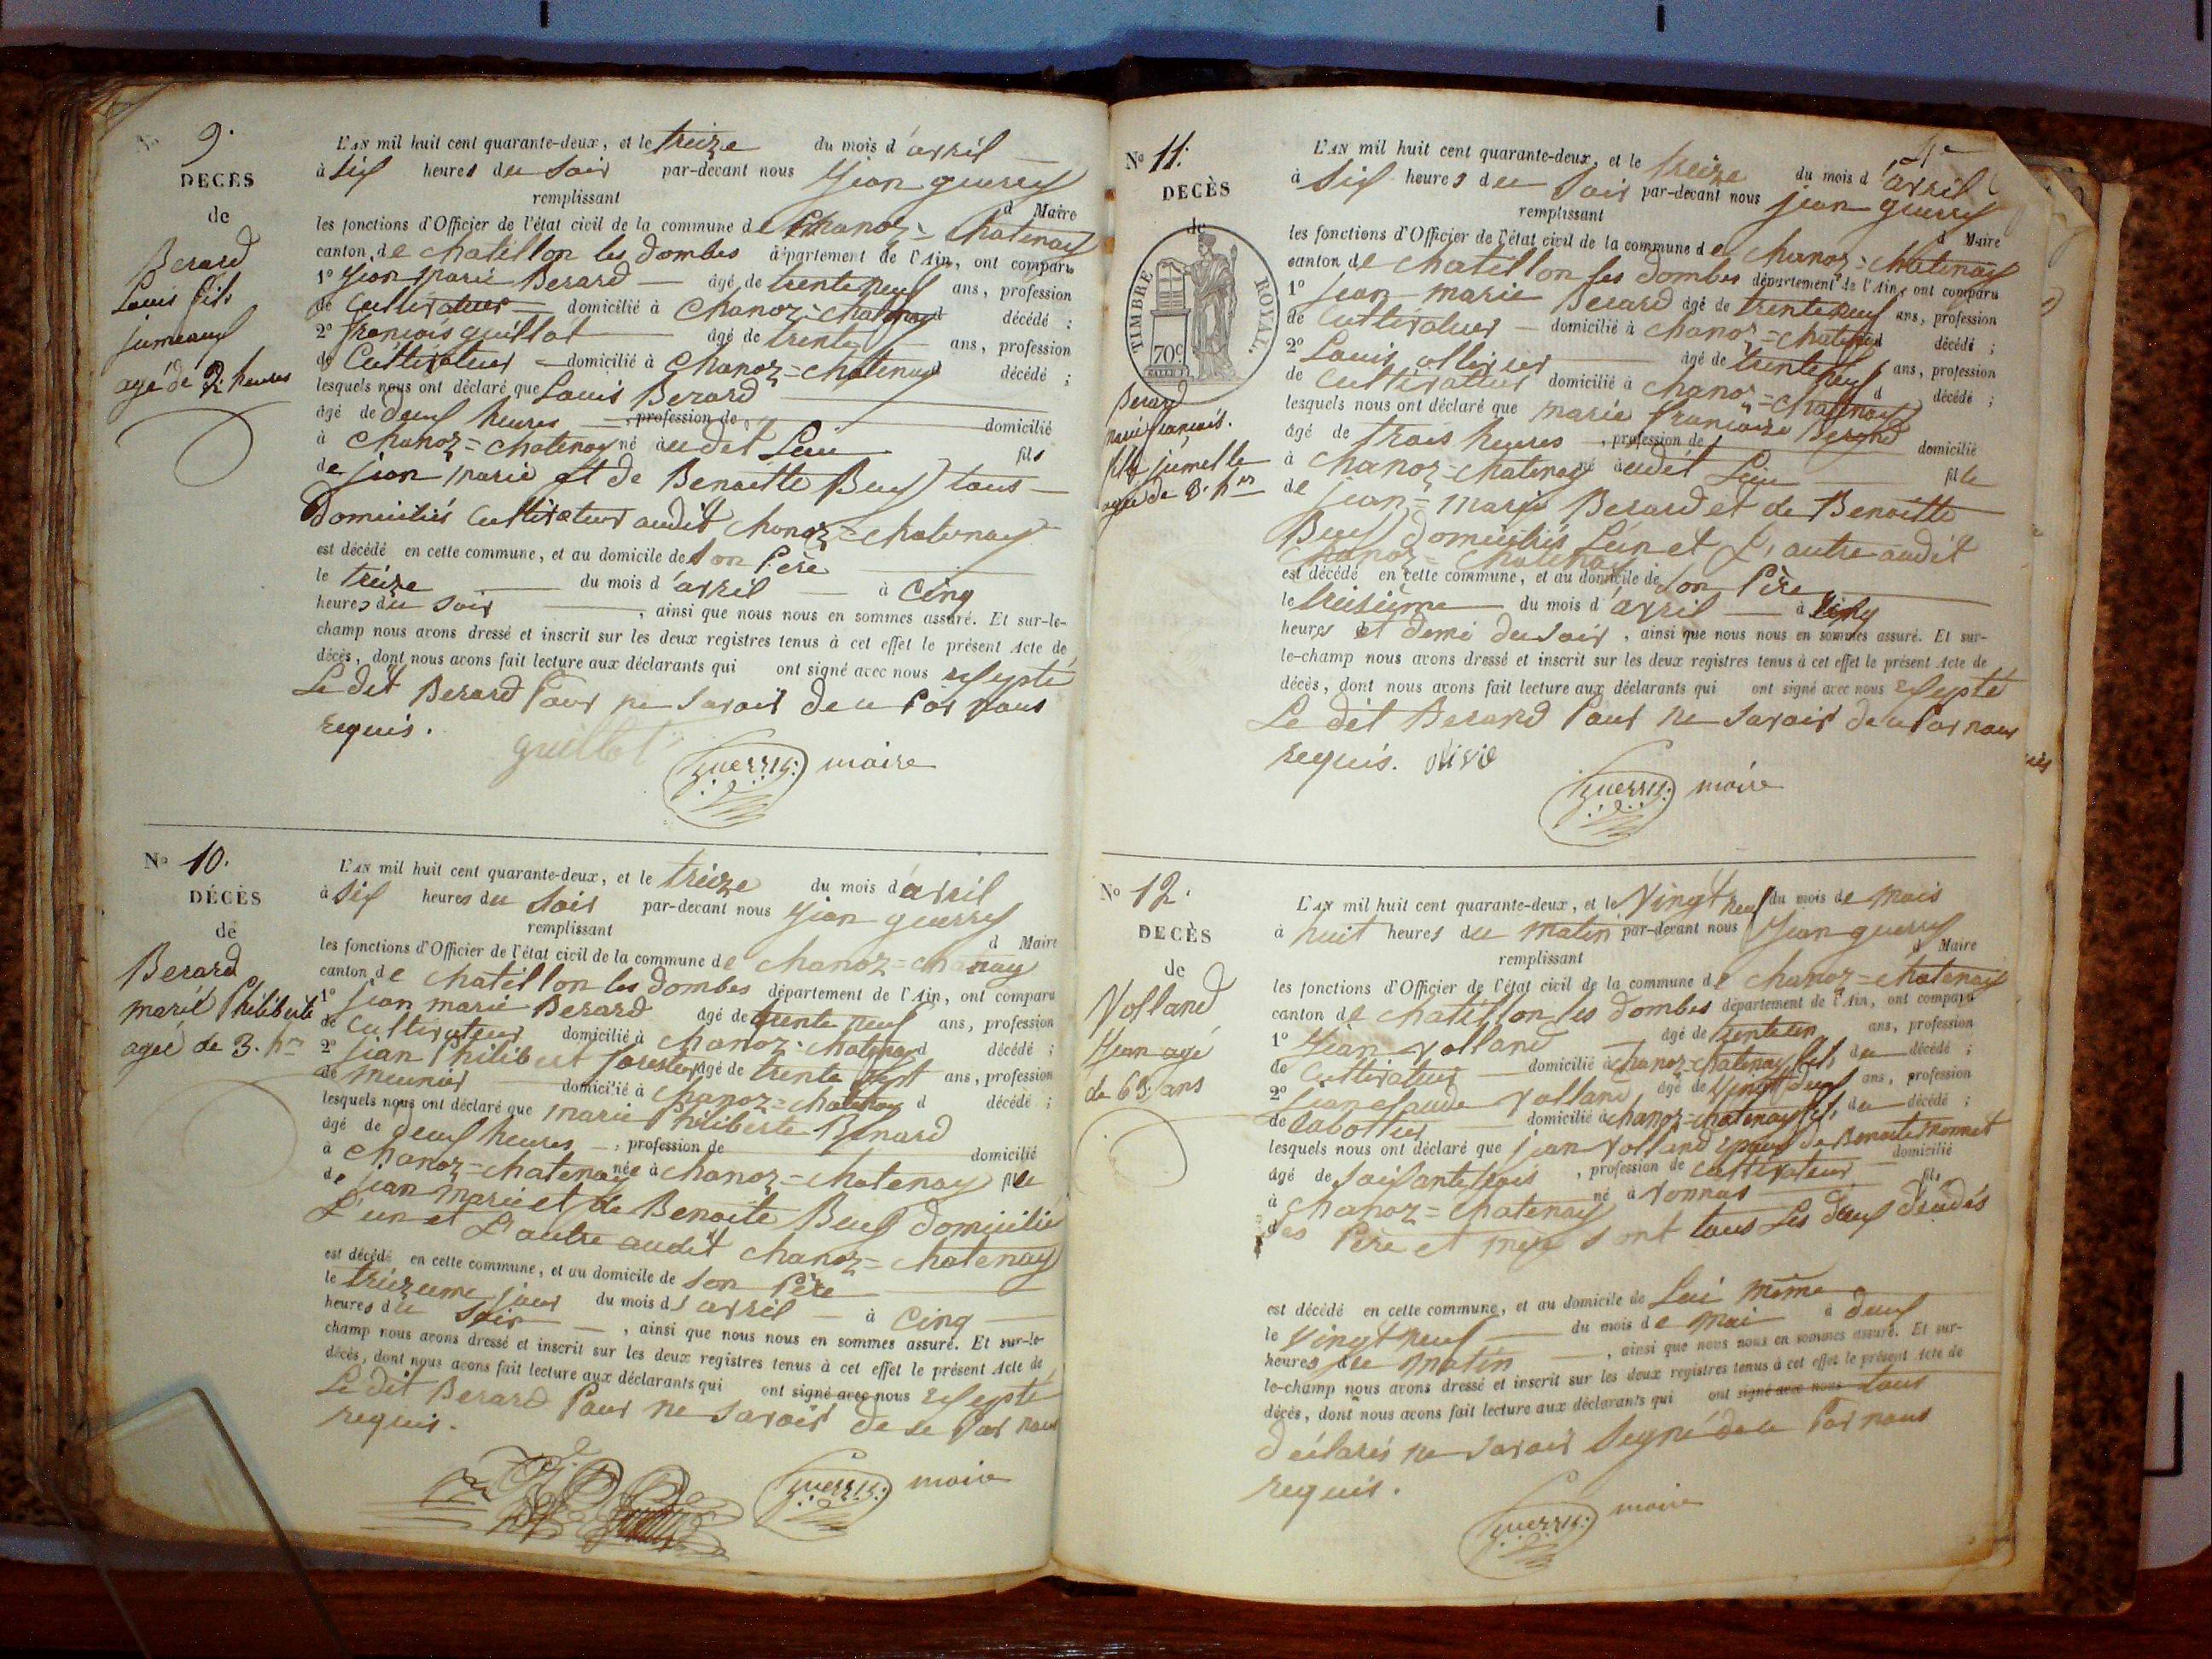 9.
DECÈS
de
Berard
Louis fils
jumeaux
agé de 2 heures
L'AN mil huit cent quarante-deux, et le treize du mois d'avril
à six heures du soir par-devant nous Jean guerry
remplissant d Maire
les fonctions d'Officier de l'état civil de la commune de Chanoz=chatenay
canton de chatillon les dombes département de l'Ain, ont comparu
1º Jean marie Berard âgé de trente neuf ans, profession
de Cultivateur domicilié à Chanoz=chatenay d décédé ;
2º françois guillot âgé de trente ans, profession
de Cultivateur domicilié à Chanoz=chatenay d décédé ;
lesquels nous ont déclaré que Louis Berard
âgé de deux heures , profession de domicilié
à chanoz=chatenay né audit Lieu fils
de jean marie et de Benoitte Buy tous
domiciliés cultivateur audit chanoz=chatenay
est décédé en cette commune, et au domicile de son Père
le treize du mois d'avril à cinq
heures du soir , ainsi que nous nous en sommes assuré. Et sur-le-
champ nous avons dressé et inscrit sur les deux registres tenus à cet effet le présent Acte de
décès, dont nous avons fait lecture aux déclarants qui ont signé avec nous exepté
Le dit Berard Pour ne savoir de ce Par nous
requis.
guillot
guerry maire
Nº 10.
DÉCÈS
de
Berard
marie Philiberte
agée de 3. hres
L'AN mil huit cent quarante-deux, et le treize du mois d'avril
à six heures du soir par-devant nous Jean guerry
remplissant d Maire
les fonctions d'Officier de l'état civil de la commune de chanoz=chatenay
canton de chatillon les dombes département de l'Ain, ont comparu
1º jean marie Berard âgé de trente neuf ans, profession
de cultivateur domicilié à chanoz=chatenay d décédé ;
2º jean Philibert forestier âgé de trente sept ans, profession
de meunier domicilié à chanoz=chatenay d décédé ;
lesquels nous ont déclaré que marie Philiberte Bérard
âgé de deux heures , profession de domicilié
à chanoz=chatenay née à chanoz=chatenay fille
de jean marie et de Benoite Buy domicilié
L'un et L'autre audit chanoz=chatenay
est décédé en cette commune, et au domicile de son Père
le treizieme jour du mois d'avril à cinq
heures du soir , ainsi que nous nous en sommes assuré. Et sur-le-
champ nous avons dressé et inscrit sur les deux registres tenus à cet effet le présent Acte de
décès, dont nous avons fait lecture aux déclarants qui ont signé avec nous exepté
Le dit Berard Pour ne savoir de ce Par nous
requis.
guerry maire
4e
Nº 11.
DECÈS
de
TIMBRE ROYAL.
70c
Berard
marie françoise.
fille jumelle
agée de 3. hres
L'AN mil huit cent quarante-deux, et le treize du mois d'avril
à six heures du soir par-devant nous jean guerry
remplissant d Maire
les fonctions d'Officier de l'état civil de la commune de chanoz=chatenay
canton de chatillon les dombes département de l'Ain, ont comparu
1º jean marie Berard âgé de trente neuf ans, profession
de Cultivateur domicilié à chanoz=chatenay d décédé ;
2º Louis ollivier âgé de trente neuf ans, profession
de cultivateur domicilié à chanoz=chatenay d décédé ;
lesquels nous ont déclaré que marie françoise Berard
âgé de trois heures , profession de domicilié
à chanoz=chatenay né audit Lieu fille
de jean=marie Berard et de Benoitte
Buy domiciliés L'un et L'autre audit
chanoz=chatenay
est décédé en cette commune, et au domicile de son Père
le treisième du mois d'avril à cinq
heures et demi du soir , ainsi que nous nous en sommes assuré. Et sur-
le-champ nous avons dressé et inscrit sur les deux registres tenus à cet effet le présent Acte de
décès, dont nous avons fait lecture aux déclarants qui ont signé avec nous exepté
Le dit Berard Pour ne savoir de ce Par nous
requis.
guerry maire
Nº 12.
DECÈS
de
Volland
Jean agé
de 63 ans
L'AN mil huit cent quarante-deux, et le Vingt neuf du mois de mais
à huit heures du matin par-devant nous Jean guerry
remplissant d Maire
les fonctions d'Officier de l'état civil de la commune de chanoz=chatenay
canton de chatillon les dombes département de l'Ain, ont comparu
1º Jean Volland âgé de trente un ans, profession
de Cultivateur domicilié à chanoz=chatenay fils du décédé ;
2º jean claude Volland âgé de Vingt deux ans, profession
de sabottier domicilié à chanoz=chatenay fils du décédé ;
lesquels nous ont déclaré que jean Volland époux de Benoite monnet
âgé de soixante trois , profession de cultivateur domicilié
à chanoz=chatenay né à Vonnas fils
des Père et mere sont tous Les deux décédés
est décédé en cette commune, et au domicile de Lui même
le Vingt neuf du mois de mai à deux
heures du matin , ainsi que nous nous en sommes assuré. Et sur-
le-champ nous avons dressé et inscrit sur les deux registres tenus à cet effet le présent Acte de
décès, dont nous avons fait lecture aux déclarants qui ont signé avec nous tous
déclarés ne savoir signé de ce Par nous
requis.
guerry maire